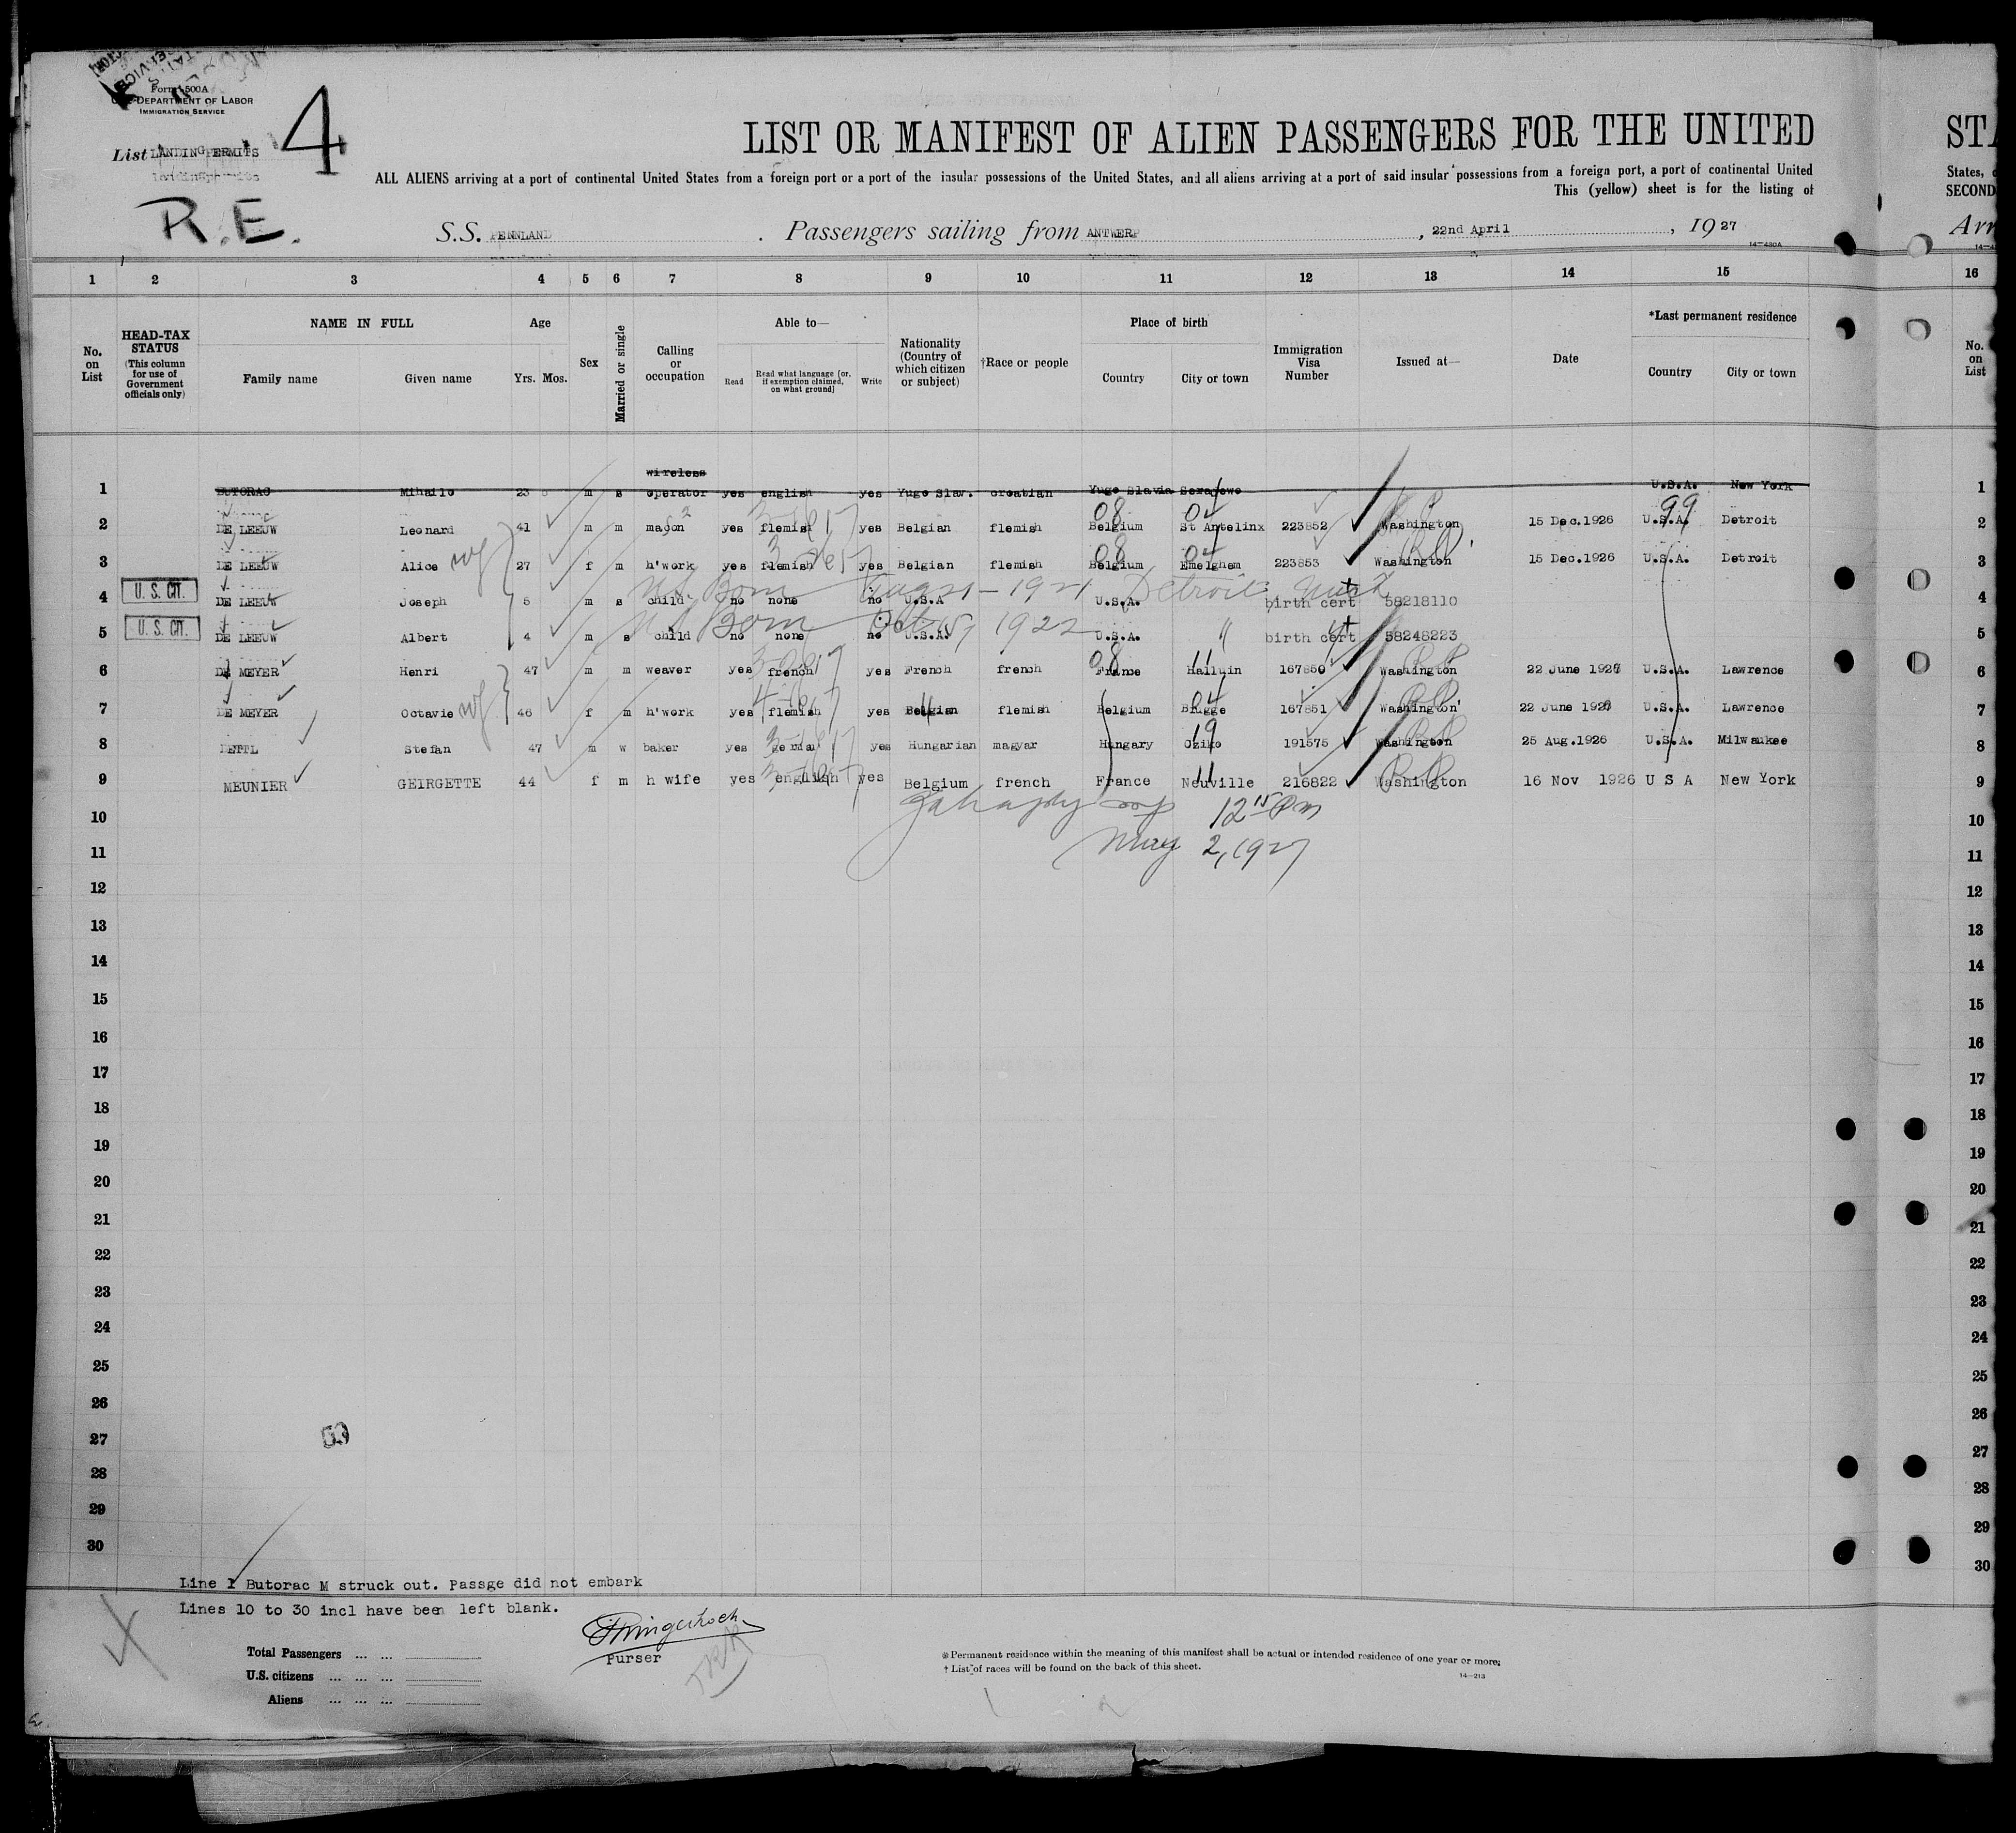 Form 500A
U.S. DEPARTMENT OF LABOR
IMMIGRATION SERVICE
List LANDING PERMITS
4
R.E.
LIST OR MANIFEST OF ALIEN PASSENGERS FOR THE UNITED
STA
ALL ALIENS arriving at a port of continental United States from a foreign port or a port of the insular possessions of the United States, and all aliens arriving at a port of said insular possessions from a foreign port, a port of continental United
States,
This (yellow) sheet is for the listing of
SECOND
S.S. PENNLAND. Passengers sailing from ANTWERP, 22nd April, 1927
Arr
14-480A
1 2 3 4 5 6 7 8 9 10 11 12 13 14 15 16
No. on List
HEAD-TAX STATUS (This column for use of Government officials only)
NAME IN FULL Family name Given name
Age Yrs. Mos.
Sex
Married or single
Calling or occupation
Able to— Read Read what language [or, if exemption claimed, on what ground] Write
Nationality (Country of which citizen or subject)
†Race or people
Place of birth Country City or town
Immigration Visa Number
Issued at—
Date
*Last permanent residence Country City or town
No. on List
wireless
1 BUTORAC Mihailo 23 m s operator yes english yes Yugo Slav. croatian Yugo Slavia Serajewo U.S.A. New York 1
08 04 99
2 DE LEEUW Leonard 41 m m mason yes flemish yes Belgian flemish Belgium St Antelinx 223852 Washington 15 Dec.1926 U.S.A. Detroit 2
08 04
3 DE LEEUW Alice wf 27 f m h'work yes flemish yes Belgian flemish Belgium Emelghem 223853 Washington 15 Dec.1926 U.S.A. Detroit 3
US Born Aug 21 - 1921 Detroit Mich
4 U. S. CIT. DE LEEUW Joseph 5 m s child no none no U.S.A U.S.A. birth cert 58218110 4
US Born Oct 1922 "
5 U. S. CIT. DE LEEUW Albert 4 m s child no none no U.S.A. U.S.A. birth cert 58248223 5
08 11
6 DE MEYER Henri 47 m m weaver yes french yes French french France Halluin 167850 Washington 22 June 1926 U.S.A. Lawrence 6
04
7 DE MEYER Octavie wf 46 f m h'work yes flemish yes Belgian flemish Belgium Brugge 167851 Washington 22 June 1926 U.S.A. Lawrence 7
19
8 DETTL Stefan 47 m w baker yes german yes Hungarian magyar Hungary Cziko 191575 Washington 25 Aug.1926 U.S.A. Milwaukee 8
11
9 MEUNIER GEIRGETTE 44 f m h wife yes english yes Belgium french France Neuville 216822 Washington 16 Nov 1926 U S A New York 9
10 12 15 PM 10
11 May 2, 1927 11
12 12
13 13
14 14
15 15
16 16
17 17
18 18
19 19
20 20
21 21
22 22
23 23
24 24
25 25
26 26
27 27
28 28
29 29
30 30
Line 1 Butorac M struck out. Passge did not embark
Lines 10 to 30 incl have been left blank.
Purser
Total Passengers ... ...
U.S. citizens ... ... ...
Aliens ... ... ...
* Permanent residence within the meaning of this manifest shall be actual or intended residence of one year or more.
† List of races will be found on the back of this sheet.
14-213